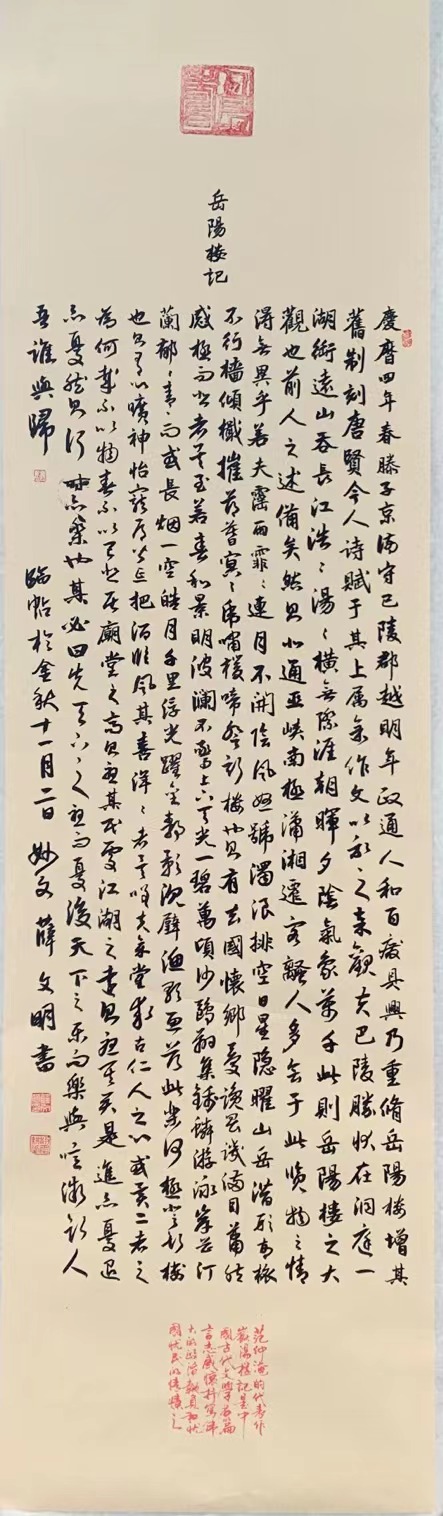 岳陽樓記
慶曆四年春滕子京謫守巴陵郡越明年政通人和百廢具興乃重脩岳陽樓增其
舊制刻唐賢今人詩賦于其上属余作文以記之予觀夫巴陵勝狀在洞庭一
湖銜遠山吞長江浩〻湯〻橫無際涯朝暉夕陰氣象萬千此則岳陽樓之大
觀也前人之述備矣然則北通巫峽南極瀟湘遷客騷人多會于此覽物之情
得無異乎若夫霪雨霏〻連月不開陰風怒號濁浪排空日星隱曜山岳潛形商旅
不行檣傾檝摧薄暮冥〻虎嘯猿啼登斯樓也則有去國懷鄉憂讒畏譏滿目蕭然
感極而悲者矣至若春和景明波瀾不驚上下天光一碧萬頃沙鷗翔集錦鱗游泳岸芷汀
蘭郁〻青〻而或長烟一空皓月千里浮光躍金靜影沉璧漁歌互荅此樂何極登斯樓
也則有心曠神怡寵辱皆忘把酒臨風其喜洋〻者矣嗟夫予嘗求古仁人之心或異二者之
為何哉不以物喜不以己悲居廟堂之高則憂其民處江湖之遠則憂其君是進亦憂退
亦憂然則何時而樂也其必曰先天下之憂而憂後天下之樂而樂與噫微斯人
吾誰與歸
臨帖於金秋十一月二日妙文薛文明書
范仲淹的代表作
岳陽樓記是中
國古代文學名篇
言志感懷抒寫博
大的政治抱負和憂
國憂民的情懷